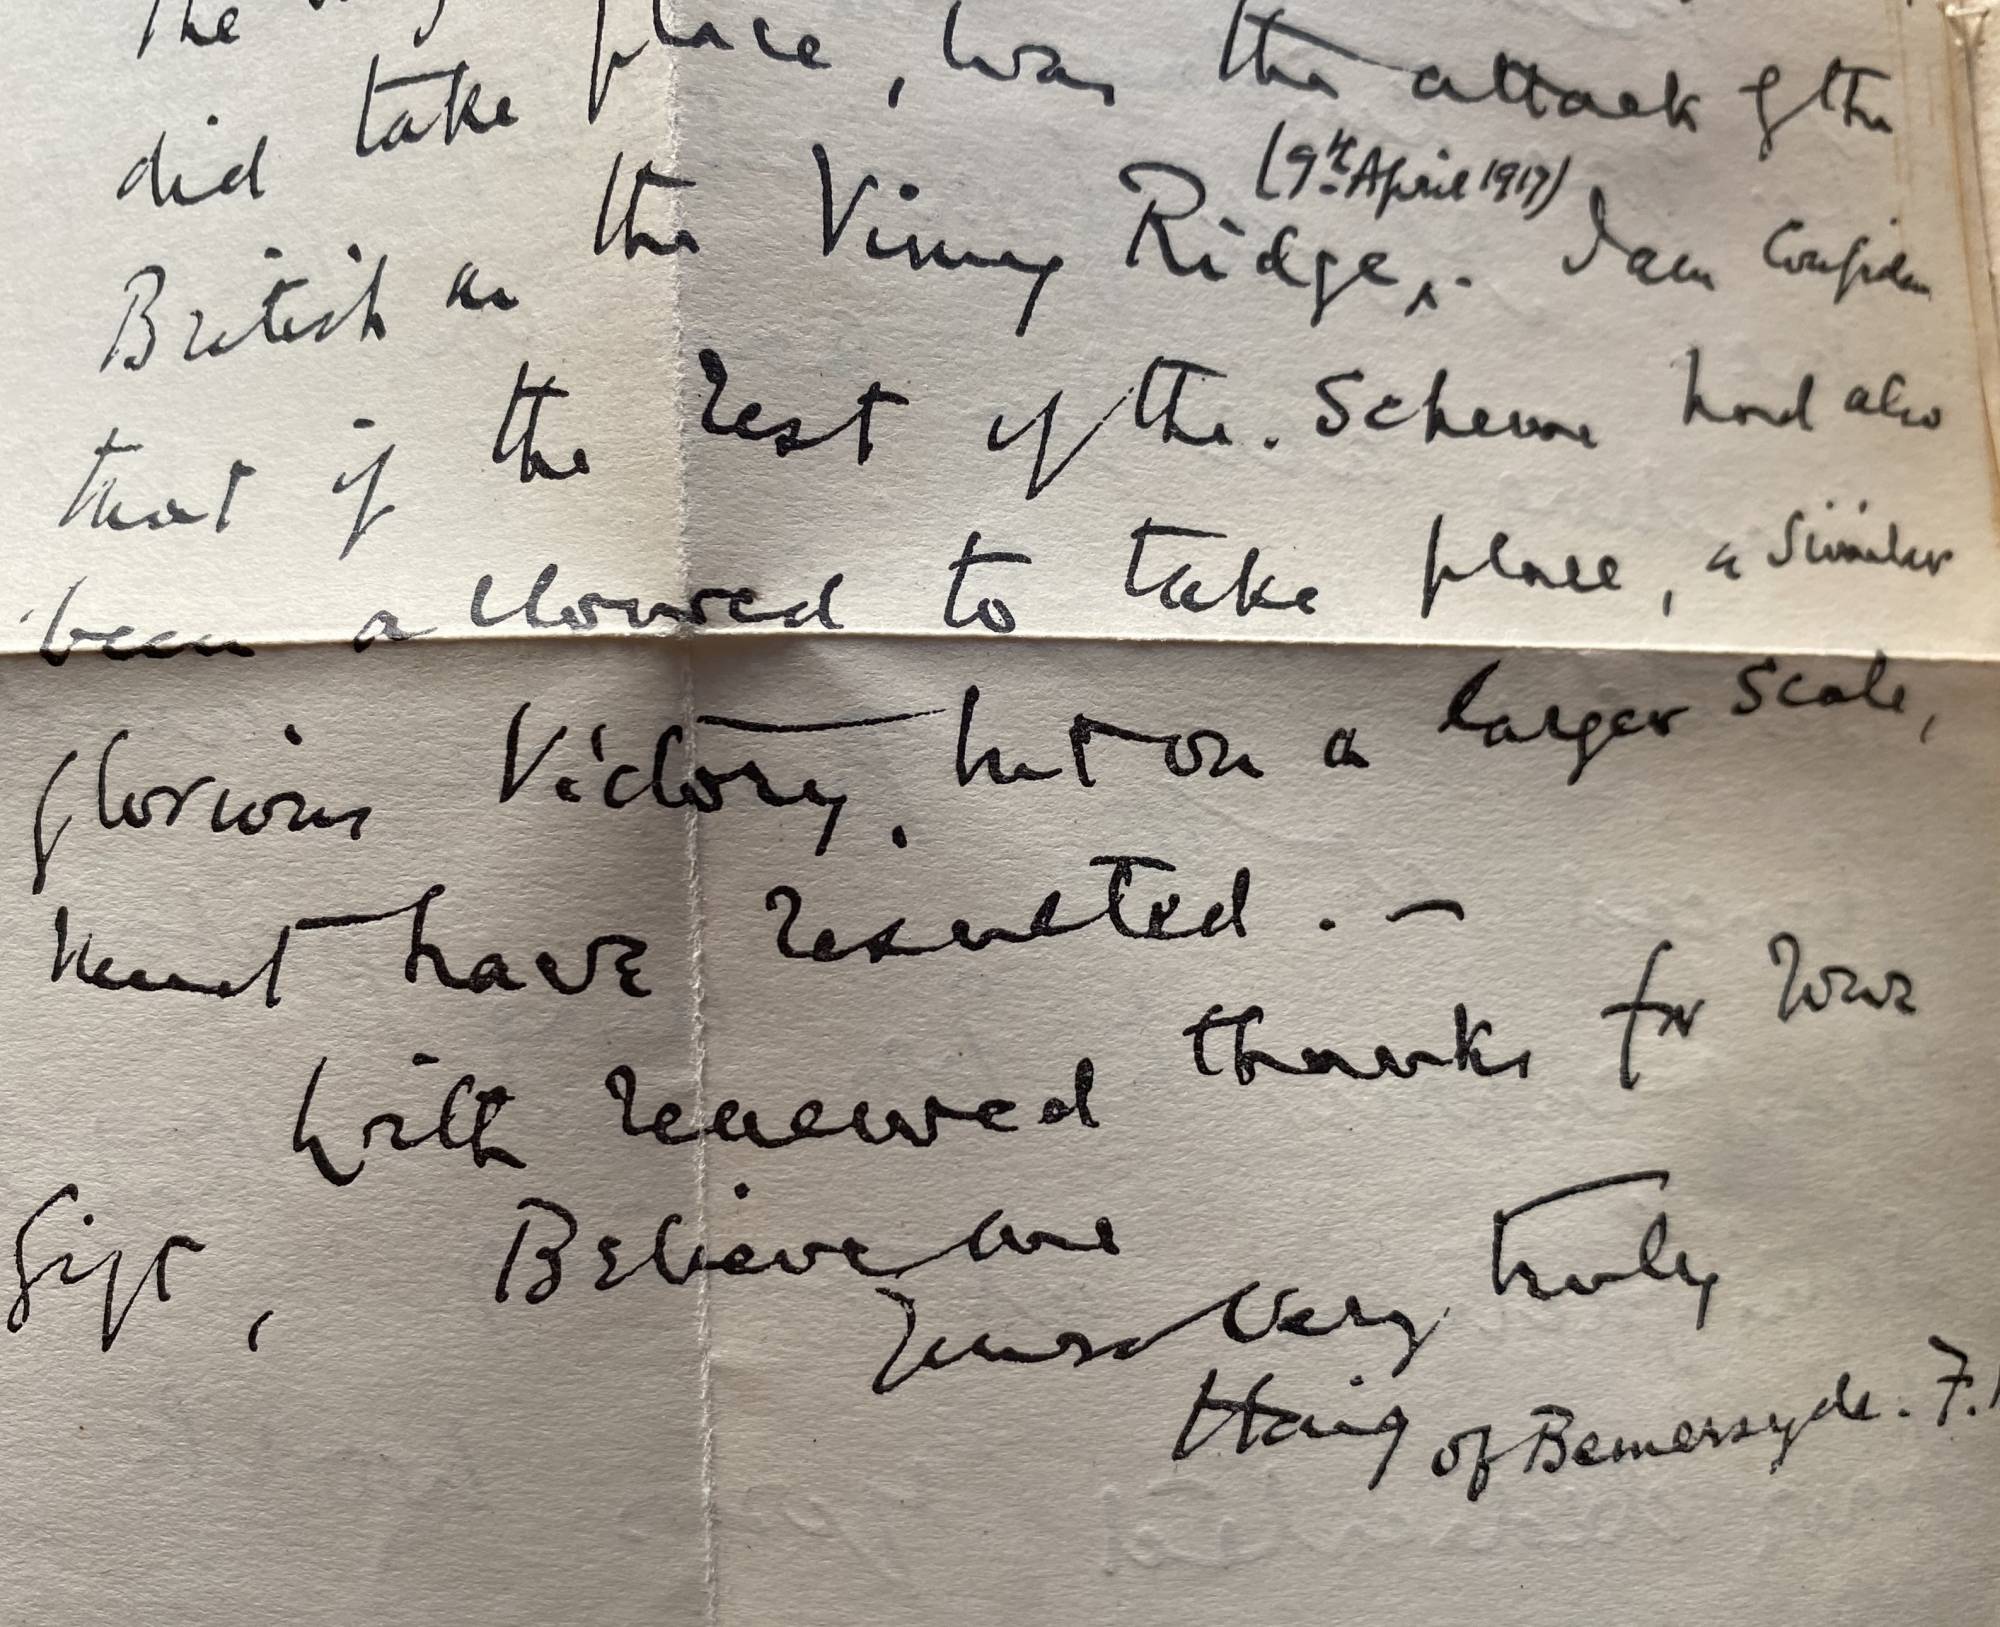 The
did take place, was the attack of the
British on the Vimy Ridge, (9th April 1917). I am confident
that if the rest of the Scheme had also
been allowed to take place, a similar
glorious Victory, but on a larger scale,
must have resulted. —
With renewed thanks for your
Gift, Believe me
Yours very truly
Haig of Bemersyde. F.